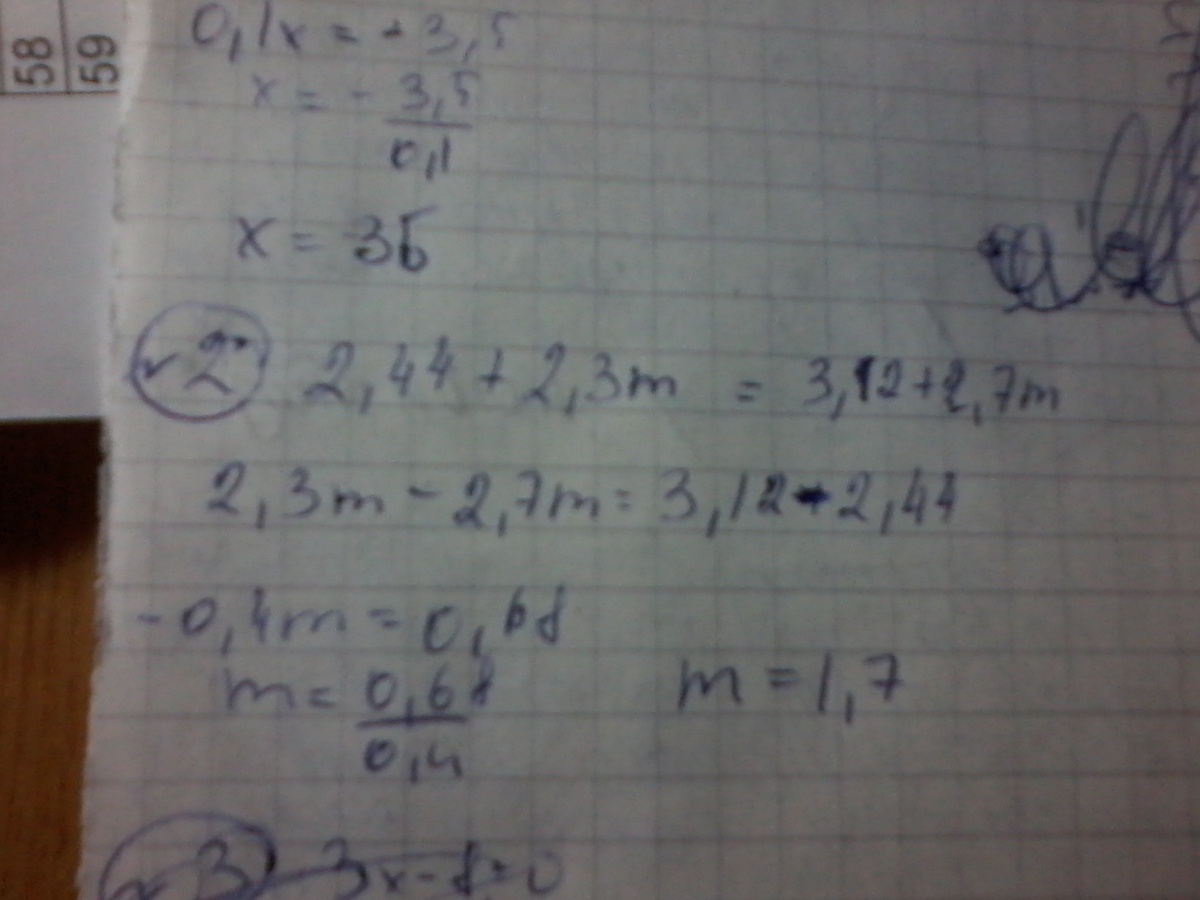 58
59
0,1x = - 3,5
x = - 3,5
0,1
x = 35
№2 2,44 + 2,3m = 3,12 + 2,7m
2,3m - 2,7m = 3,12 - 2,44
-0,4m = 0,68
m = 0,68
0,4
m = 1,7
№3 3x - 8 = 0